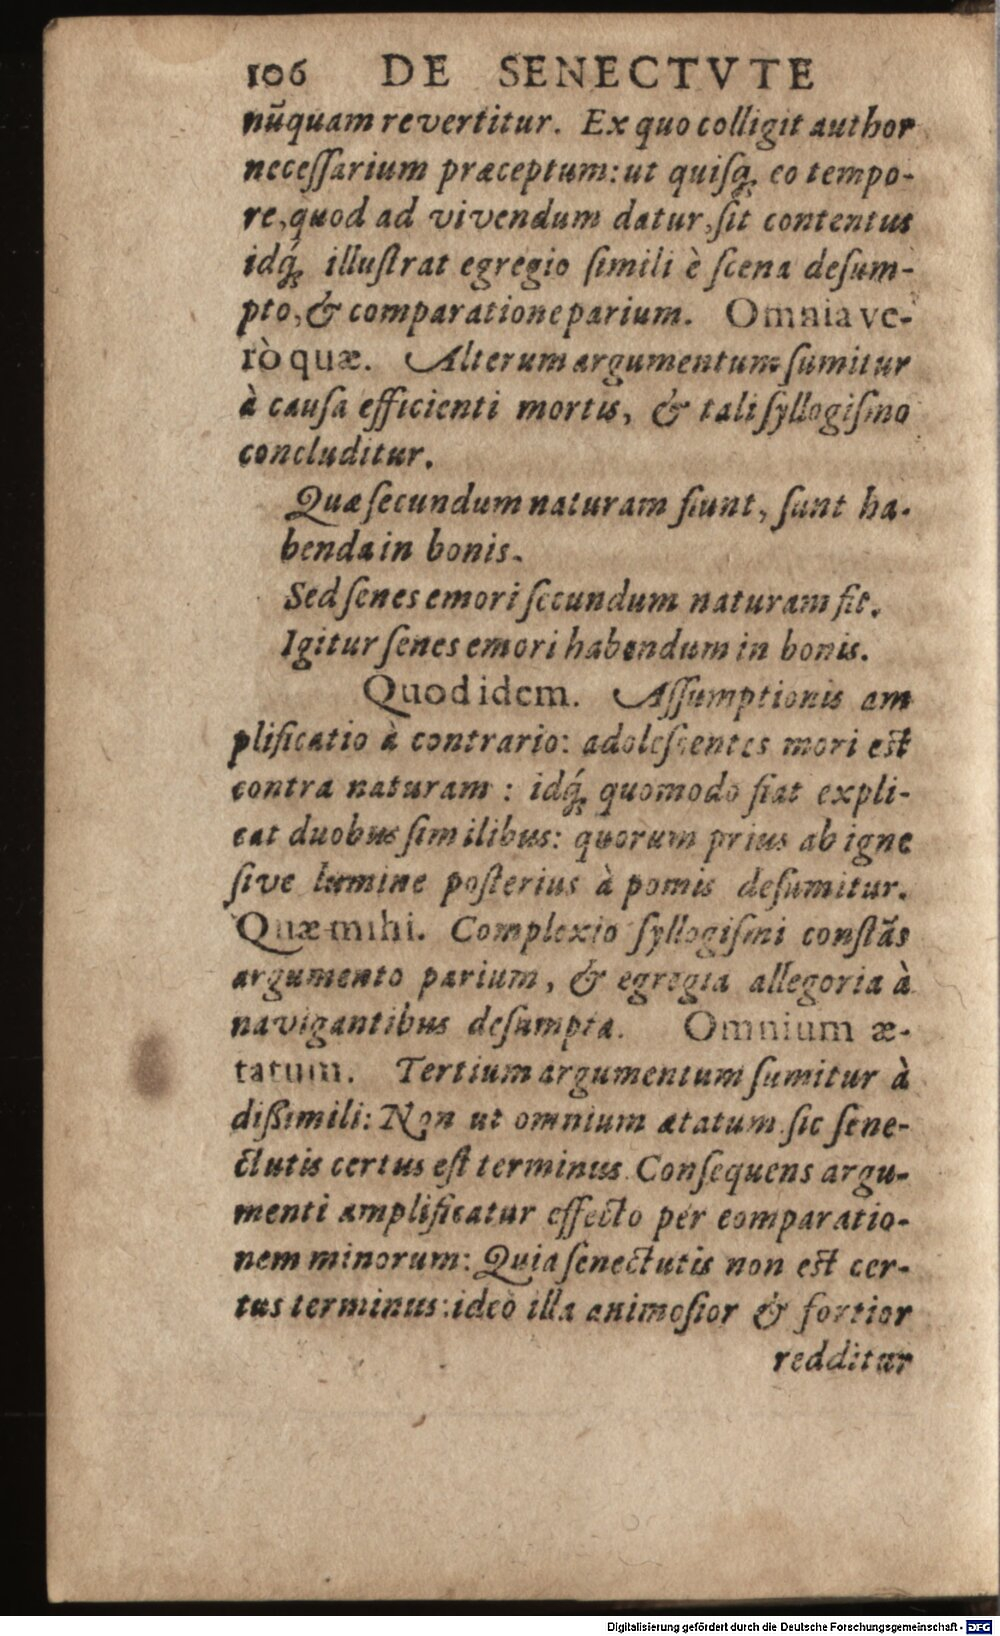 106 DE SENECTVTE
nūquam revertitur. Ex quo colligit author
neceſſarium præceptum: ut quiſq; eo tempo-
re, quod ad vivendum datur, ſit contentus
idq́; illuſtrat egregio ſimili è ſcena deſum-
pto, & comparatione parium. Omnia ve-
rò quæ. Alterum argumentum ſumitur
à cauſa efficienti mortis, & tali ſyllogiſmo
concluditur.
Quæ ſecundum naturam fiunt, ſunt ha-
benda in bonis.
Sed ſenes emori ſecundum naturam fit.
Igitur ſenes emori habendum in bonis.
Quod idem. Aſſumptionis am
plificatio à contrario: adoleſcentes mori eſt
contra naturam: idq́; quomodo fiat expli-
cat duobus ſimilibus: quorum prius ab igne
ſive lumine poſterius à pomis deſumitur.
Quæ mihi. Complexio ſyllogiſmi conſtās
argumento parium, & egregia allegoria à
navigantibus deſumpta. Omnium æ-
tatum. Tertium argumentum ſumitur à
diſſimili: Non ut omnium ætatum ſic ſene-
ctutis certus eſt terminus. Conſequens argu-
menti amplificatur effecto per comparatio-
nem minorum: Quia ſenectutis non eſt cer-
tus terminus: ideò illa animoſior & fortior
redditur
Digitalisierung gefördert durch die Deutsche Forschungsgemeinschaft - DFG